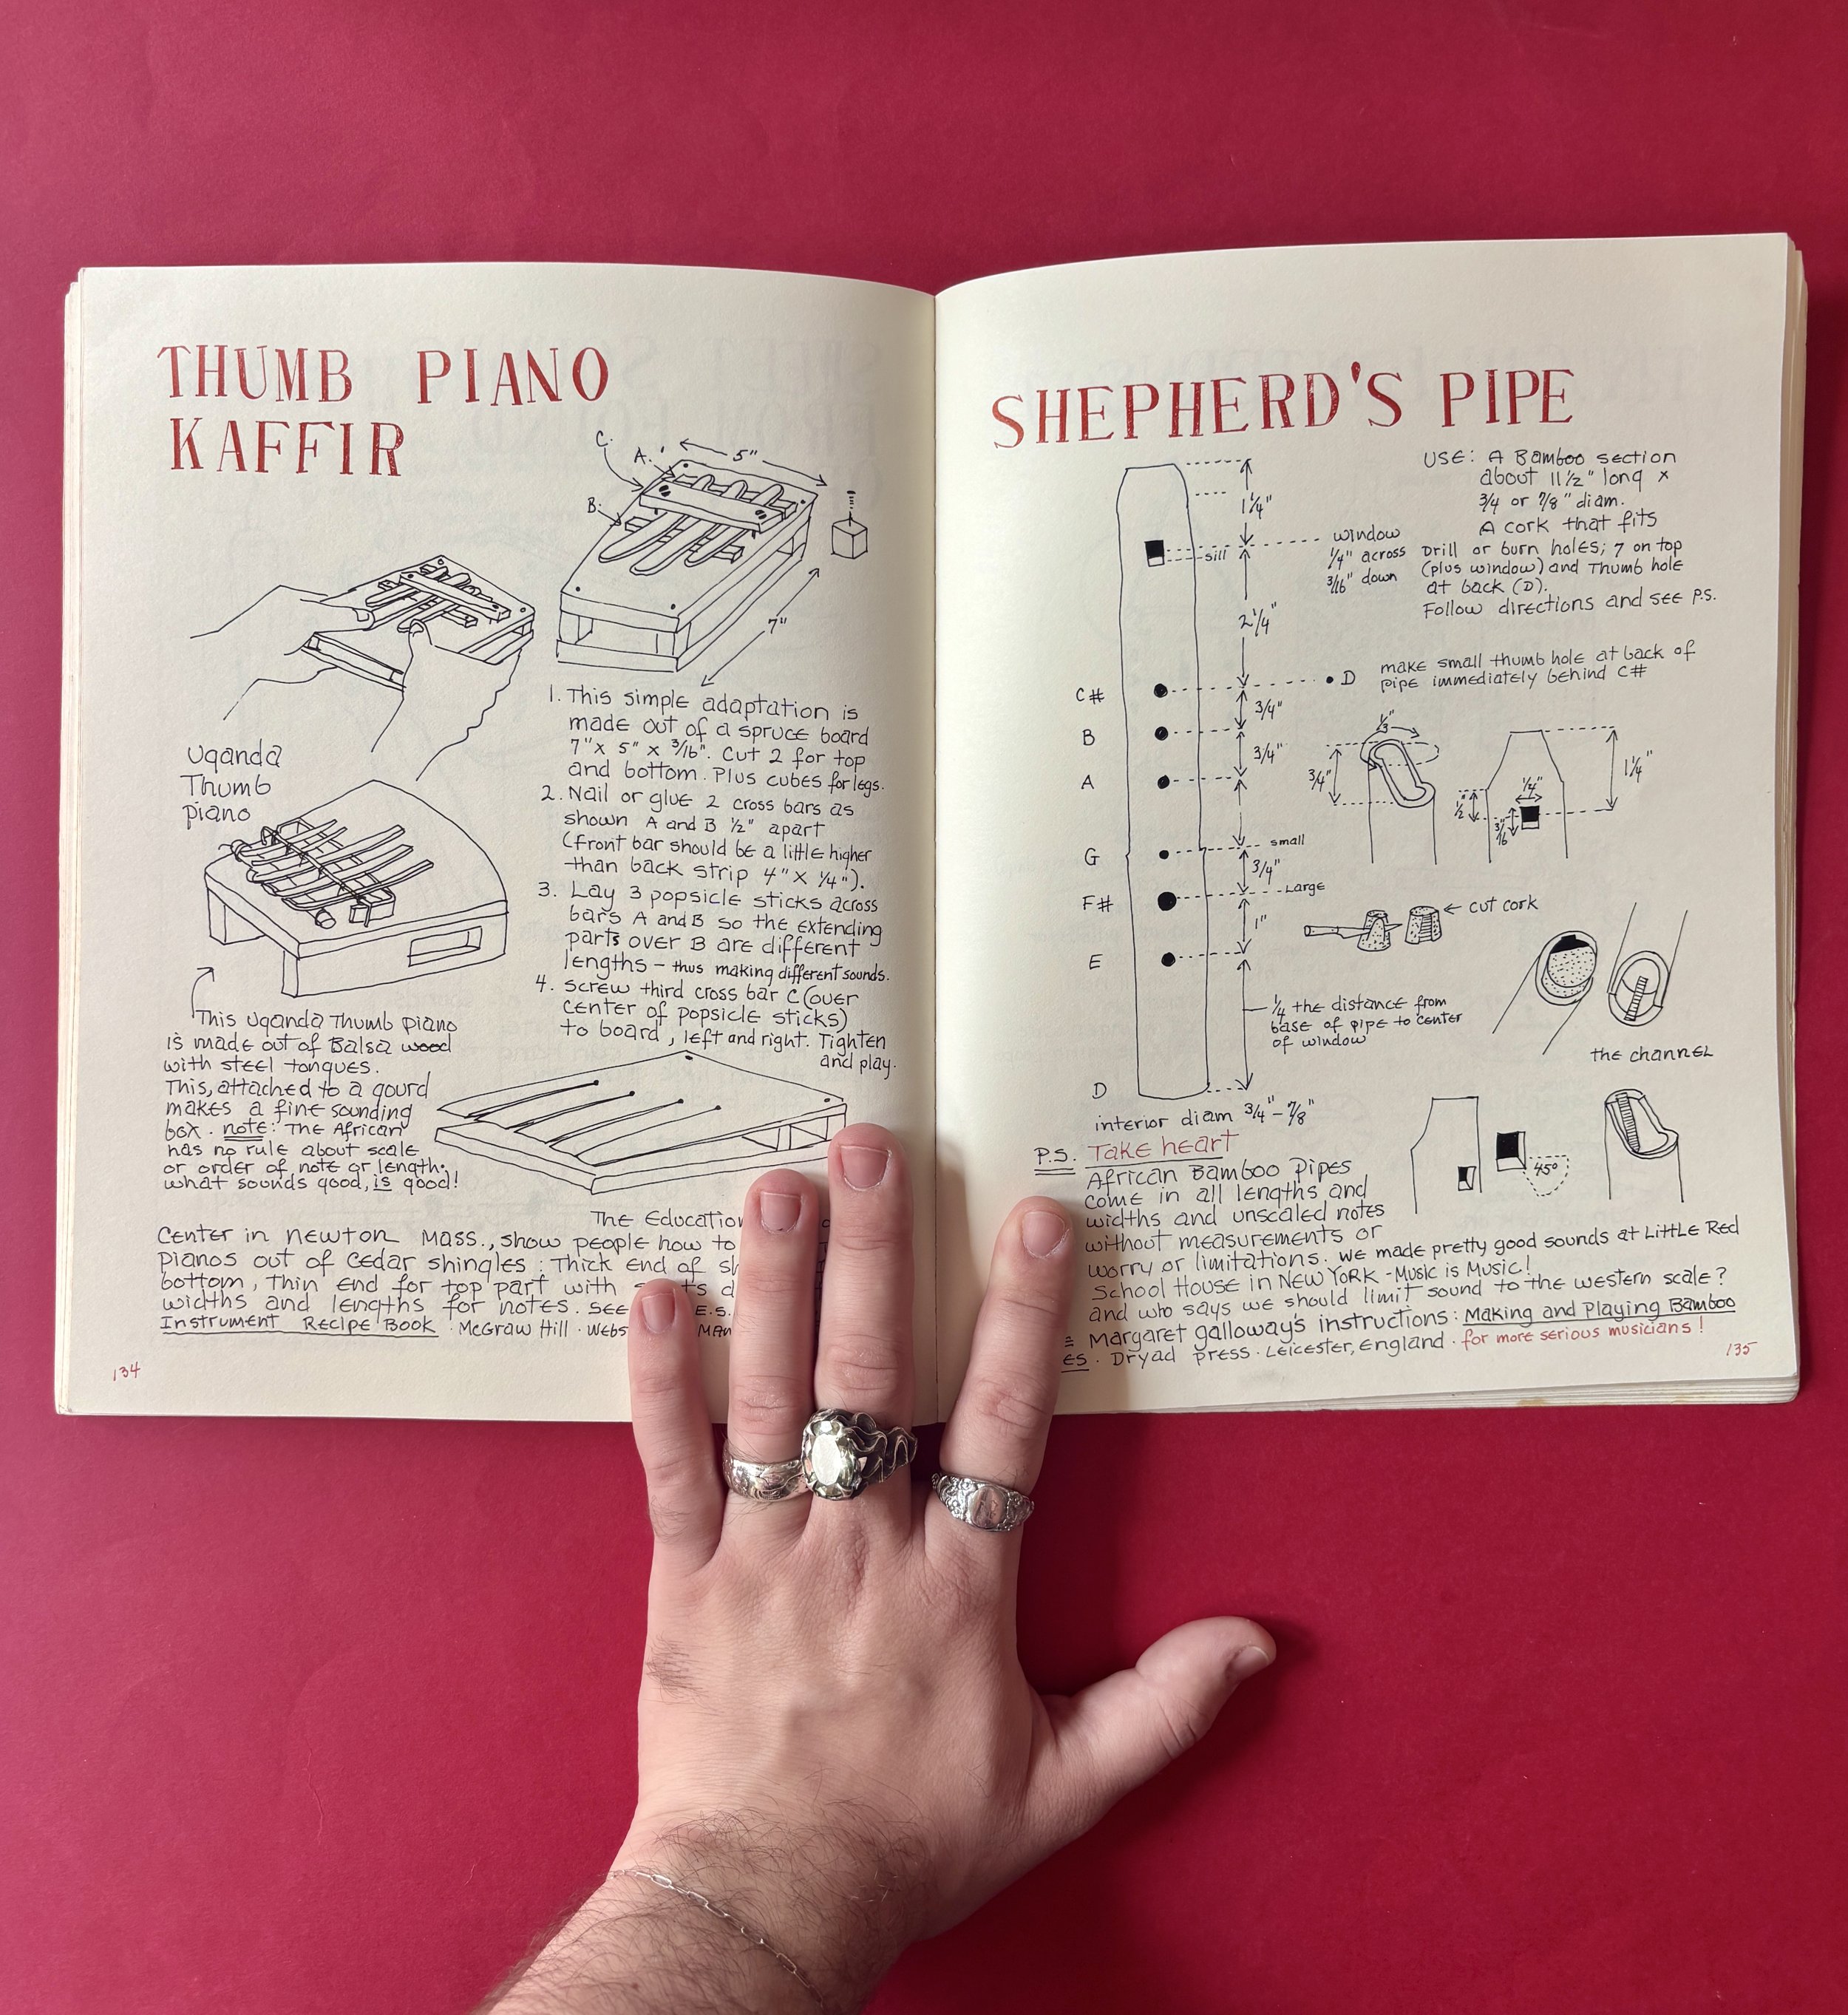 THUMB PIANO
KAFFIR
C.
A.
5"
B.
7"
1. This simple adaptation is
made out of a spruce board
7" x 5" x 3/16". Cut 2 for top
and bottom. Plus cubes for legs.
2. Nail or glue 2 cross bars as
shown A and B 1/2" apart
(front bar should be a little higher
than back strip 4" x 1/4").
3. Lay 3 popsicle sticks across
bars A and B so the extending
parts over B are different
lengths – thus making different sounds.
4. Screw third cross bar C (over
center of popsicle sticks)
to board, left and right. Tighten
and play.
Uganda
Thumb
piano
This Uganda Thumb piano
is made out of Balsa wood
with steel tongues.
This, attached to a gourd
makes a fine sounding
box. note: The African
has no rule about scale
or order of note or length.
what sounds good, is good!
The Education
Center in newton Mass., show people how to
pianos out of cedar shingles: Thick end of
bottom, Thin end for top part with
widths and lengths for notes. See E.S.
Instrument Recipe Book · McGraw Hill ·
134
SHEPHERD'S PIPE
USE: A Bamboo section
about 11 1/2" long x
3/4 or 7/8" diam.
A cork that fits
Drill or burn holes; 7 on top
(plus window) and Thumb hole
at back (D).
Follow directions and see P.S.
1 1/4"
window
1/4" across
3/16" down
sill
2 1/4"
D make small thumb hole at back of
pipe immediately behind C#
C#
3/4"
B
3/4"
A
G
small
3/4"
F#
Large
1"
E
1/4 the distance from
base of pipe to center
of window
D
interior diam 3/4" – 7/8"
1/3"
3/4"
1/2"
1/4"
3/16
1 1/4"
cut cork
the channel
45°
P.S. Take heart
African Bamboo Pipes
come in all lengths and
widths and unscaled notes
without measurements or
worry or limitations. We made pretty good sounds at Little Red
School House in New York - Music is Music!
and who says we should limit sound to the western scale?
Margaret galloway's instructions: Making and Playing Bamboo
es. Dryad press · Leicester, England · for more serious musicians!
135